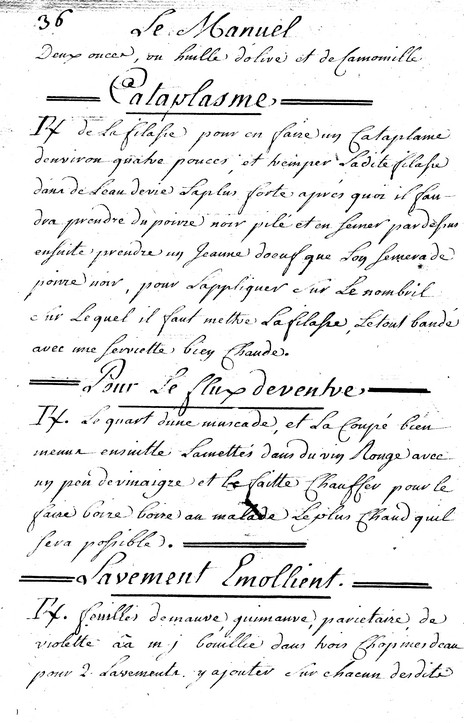 36
Le Manuel
Deux onces, ou huille d'olive et de Camomille
Cataplasme
Rx de La filasse pour en faire un Cataplame
denviron quatre pouces, et tremper Ladite filasse
dans de Leau devie La plus forte apres quoi il fau-
dra prendre du poivre noir pilé et en semer par dessus
ensuite prendre un Jeaune doeuf que Lon semera de
poivre noir, pour Lappliquer sur Le nombril
sur Lequel il faut mettre La filasse, Le tout bandé
avec une serviette bien Chaude.
Pour Le flux de ventre
Rx. Le quart dune muscade, et La Coupé bien
menue ensuitte Lamettés dans du vin Rouge avec
un peu de vinaigre et le faitte Chauffer pour le
faire boire boire au malade Le plus Chaud quil
sera possible.
Lavement Emollient.
Rx. feuilles de mauve guimauve, parietaire, de
violette āā m j bouillie dans trois Chop mes deau
pour 2 Lavements. y ajouter sur chacun desdits